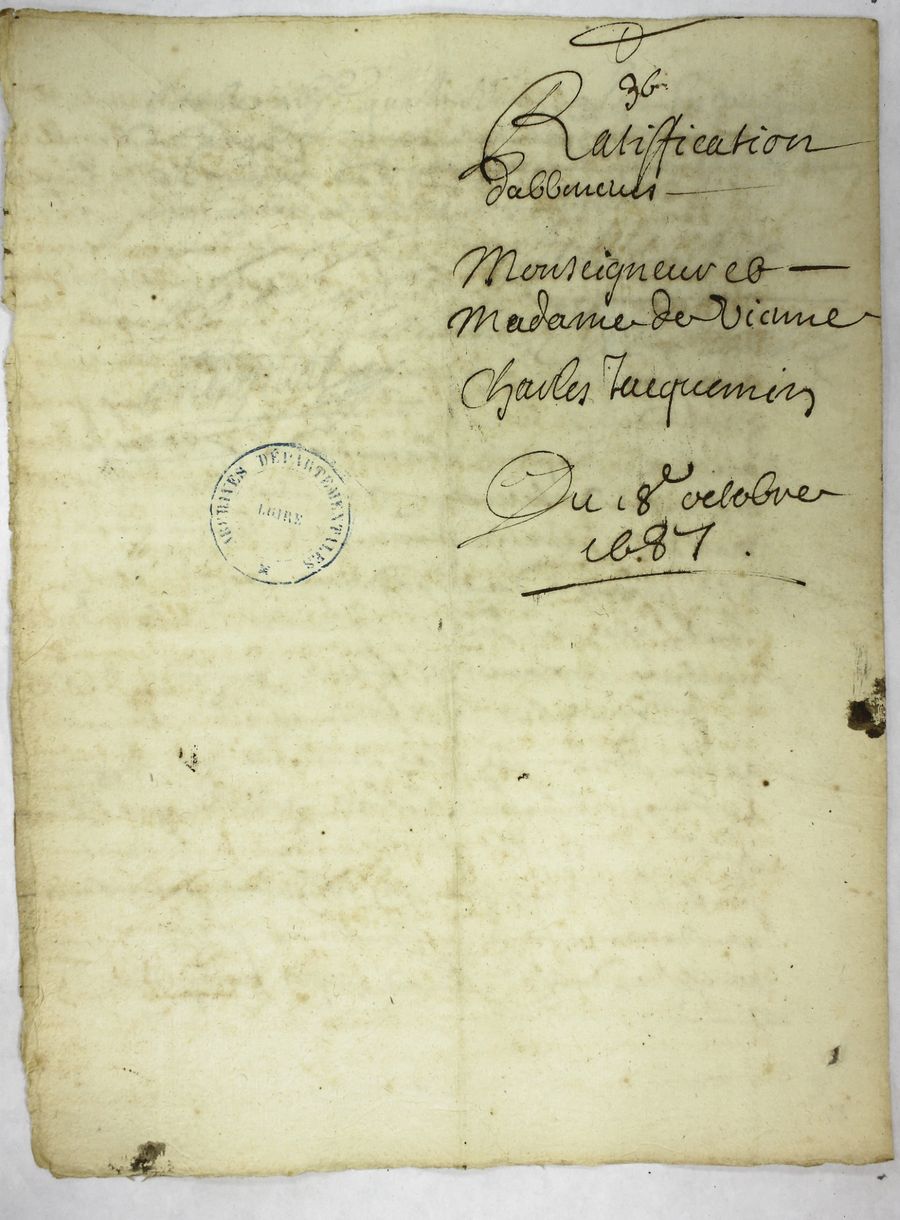 36
Ratiffication
dabbenevis
Monseigneur et
Madame de Vienne
Charles Jacquemin
Du 18e octobre
1687.
ARCHIVES DÉPARTEMENTALES
LOIRE